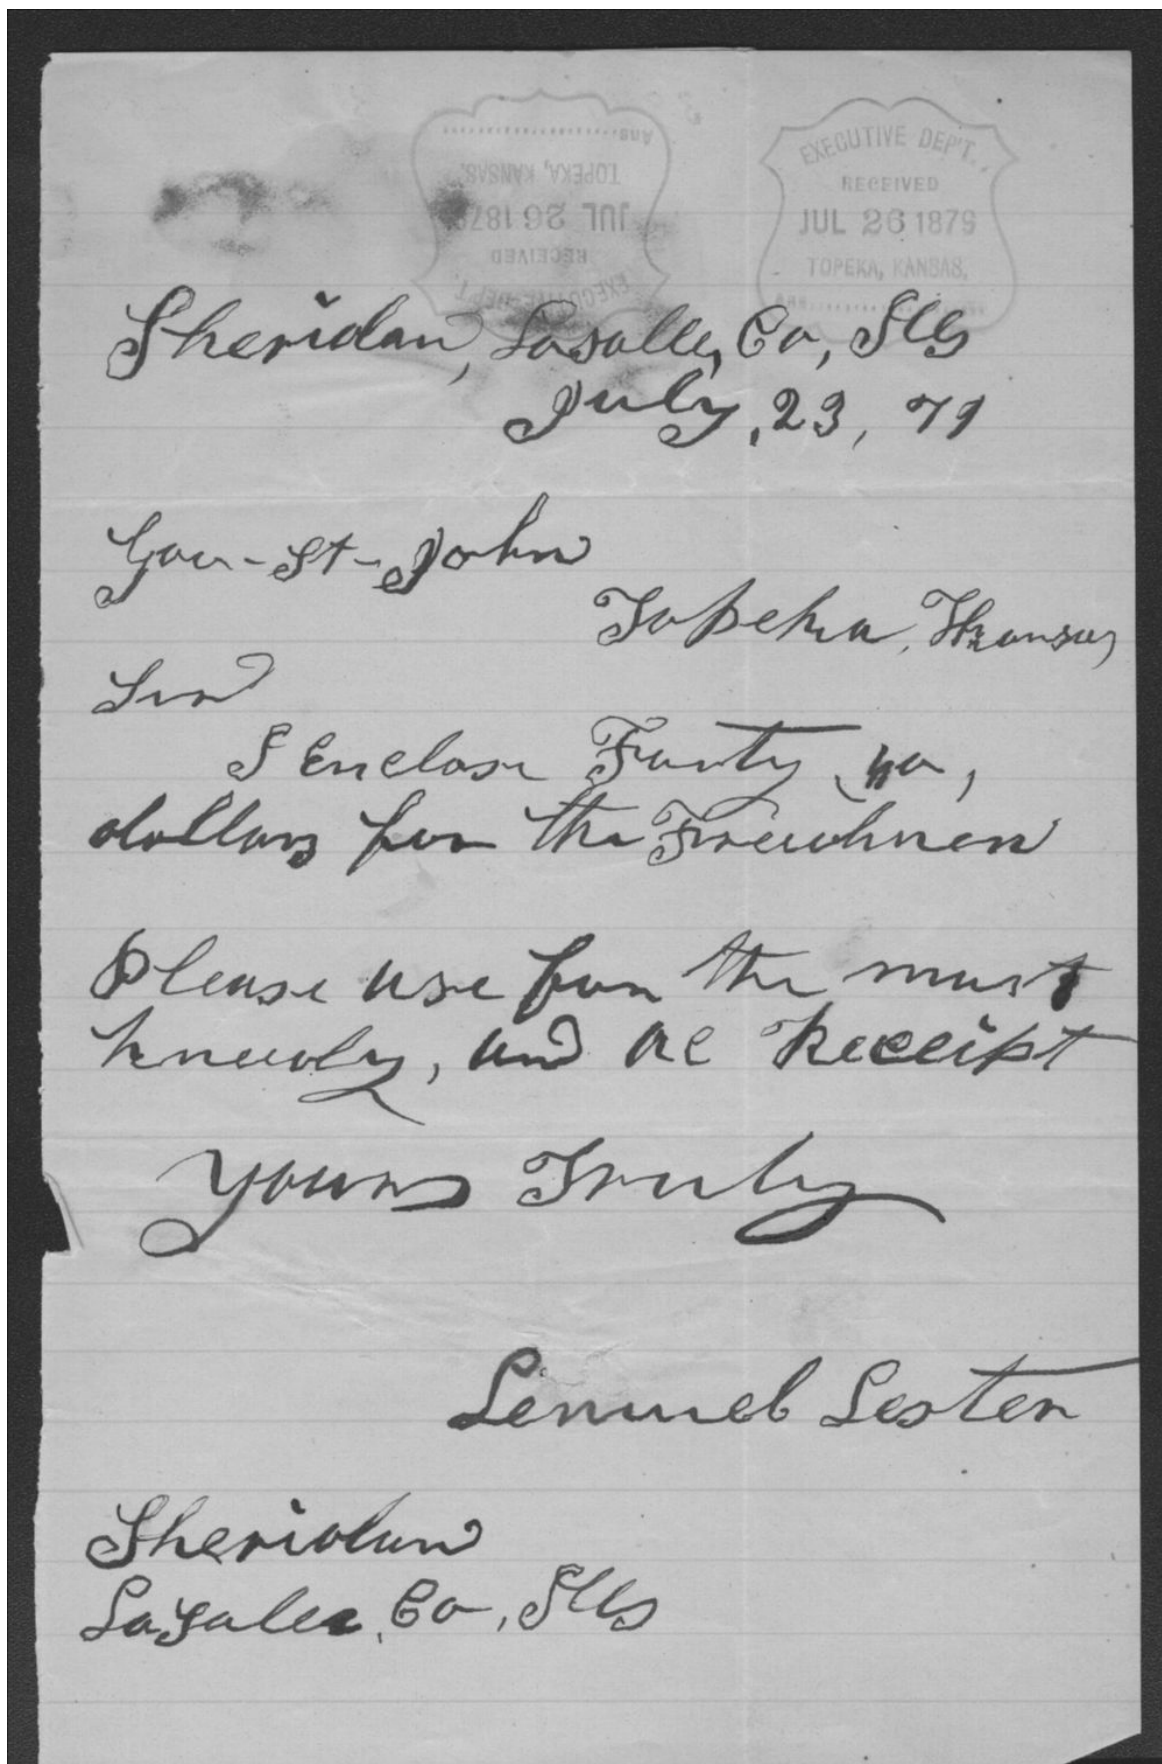 EXECUTIVE DEP'T.
RECEIVED
JUL 26 1879
TOPEKA, KANSAS.
Ans
EXECUTIVE DEP'T.
RECEIVED
JUL 26 1879
TOPEKA, KANSAS.
Ans
Sheridan, Lasalle, Co, Ills
July, 23, 79
Gov-St-John
Topeka, Kansas
Sir
I Enclose Fourty, 40,
dollars for the Freedmen
Please use for the most
kneedy, and Receipt
Yours Truly
Lemuel Lester
Sheridan
Lasalle, Co, Ills